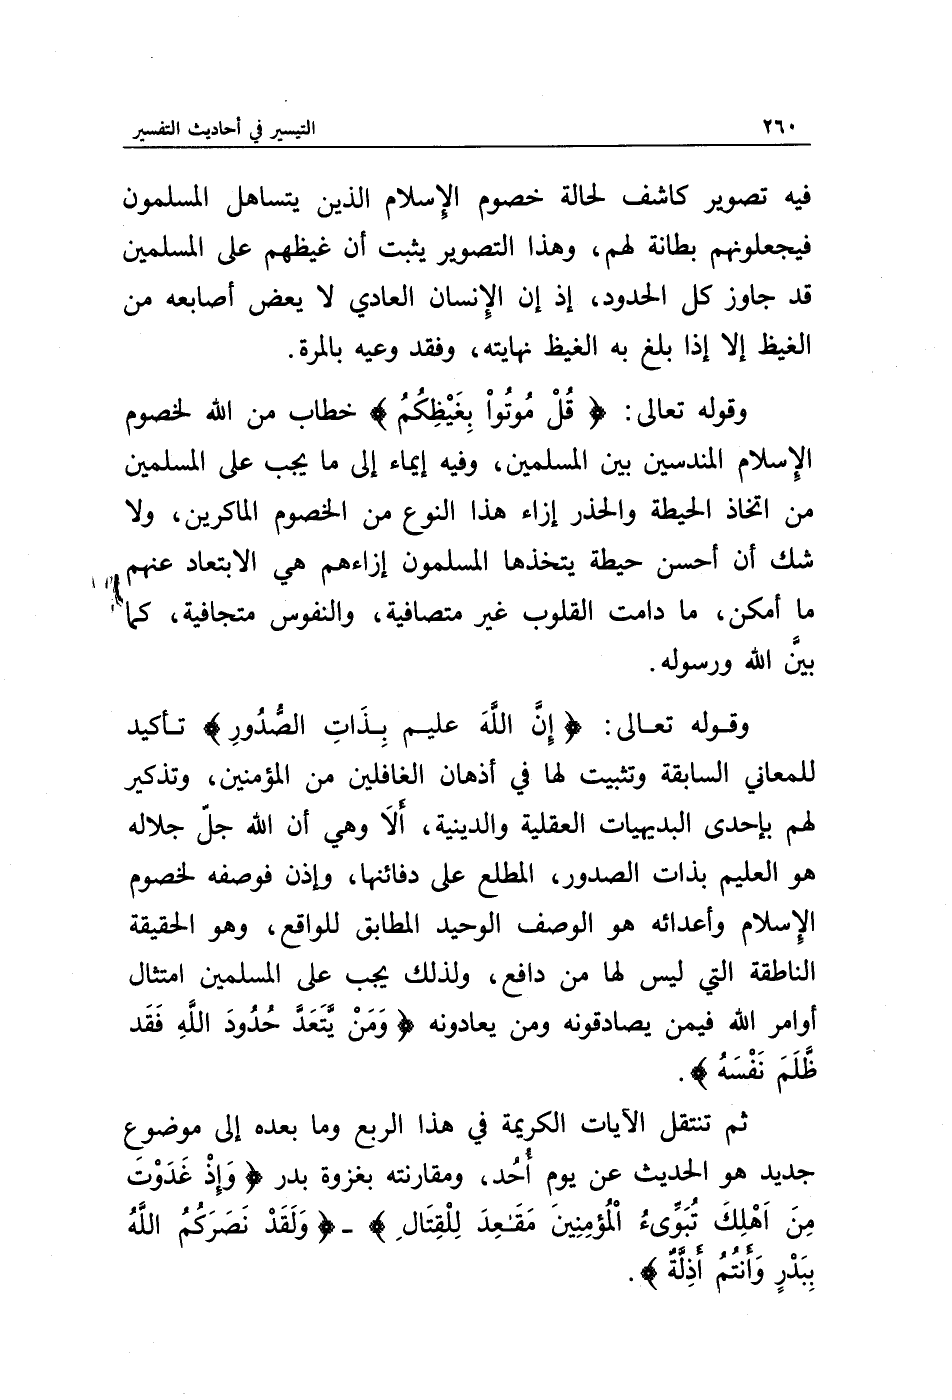 ٢٦٠ التيسير في أحاديث التفسير
فيه تصوير كاشف لحالة خصوم الإسلام الذين يتساهل المسلمون
فيجعلونهم بطانة لهم، وهذا التصوير يثبت أن غيظهم على المسلمين
قد جاوز كل الحدود، إذ إن الإنسان العادي لا يعض أصابعه من
الغيظ إلا إذا بلغ به الغيظ نهايته، وفقد وعيه بالمرة.
وقوله تعالى: ﴿ قُلْ مُوتُواْ بِغَيْظِكُمُ ﴾ خطاب من الله لخصوم
الإسلام المندسين بين المسلمين، وفيه إيماء إلى ما يجب على المسلمين
من اتخاذ الحيطة والحذر إزاء هذا النوع من الخصوم الماكرين، ولا
شك أن أحسن حيطة يتخذها المسلمون إزاءهم هي الابتعاد عنهم
ما أمكن، ما دامت القلوب غير متصافية، والنفوس متجافية، كما
بينَّ الله ورسوله.
وقوله تعالى: ﴿ إِنَّ اللَّهَ عليم بِذَاتِ الصُّدُورِ ﴾ تأكيد
للمعاني السابقة وتثبيت لها في أذهان الغافلين من المؤمنين، وتذكير
لهم بإحدى البديهيات العقلية والدينية، أَلَا وهي أن الله جلّ جلاله
هو العليم بذات الصدور، المطلع على دفائنها، وإذن فوصفه لخصوم
الإسلام وأعدائه هو الوصف الوحيد المطابق للواقع، وهو الحقيقة
الناطقة التي ليس لها من دافع، ولذلك يجب على المسلمين امتثال
أوامر الله فيمن يصادقونه ومن يعادونه ﴿ وَمَنْ يَّتَعَدَّ حُدُودَ اللَّهِ فَقَد
ظَّلَمَ نَفْسَهُ ﴾.
ثم تنتقل الآيات الكريمة في هذا الربع وما بعده إلى موضوع
جديد هو الحديث عن يوم أُحُد، ومقارنته بغزوة بدر ﴿ وَإِذْ غَدَوْتَ
مِنَ اَهْلِكَ تُبَوِّىءُ الْمُؤمِنِينَ مَقَـٰعِدَ لِلْقِتَالِ ﴾ ـ ﴿ وَلَقَدْ نَصَرَكُمُ اللَّهُ
بِبَدْرٍ وَأَنتُمُ أَذِلَّةٌ ﴾.